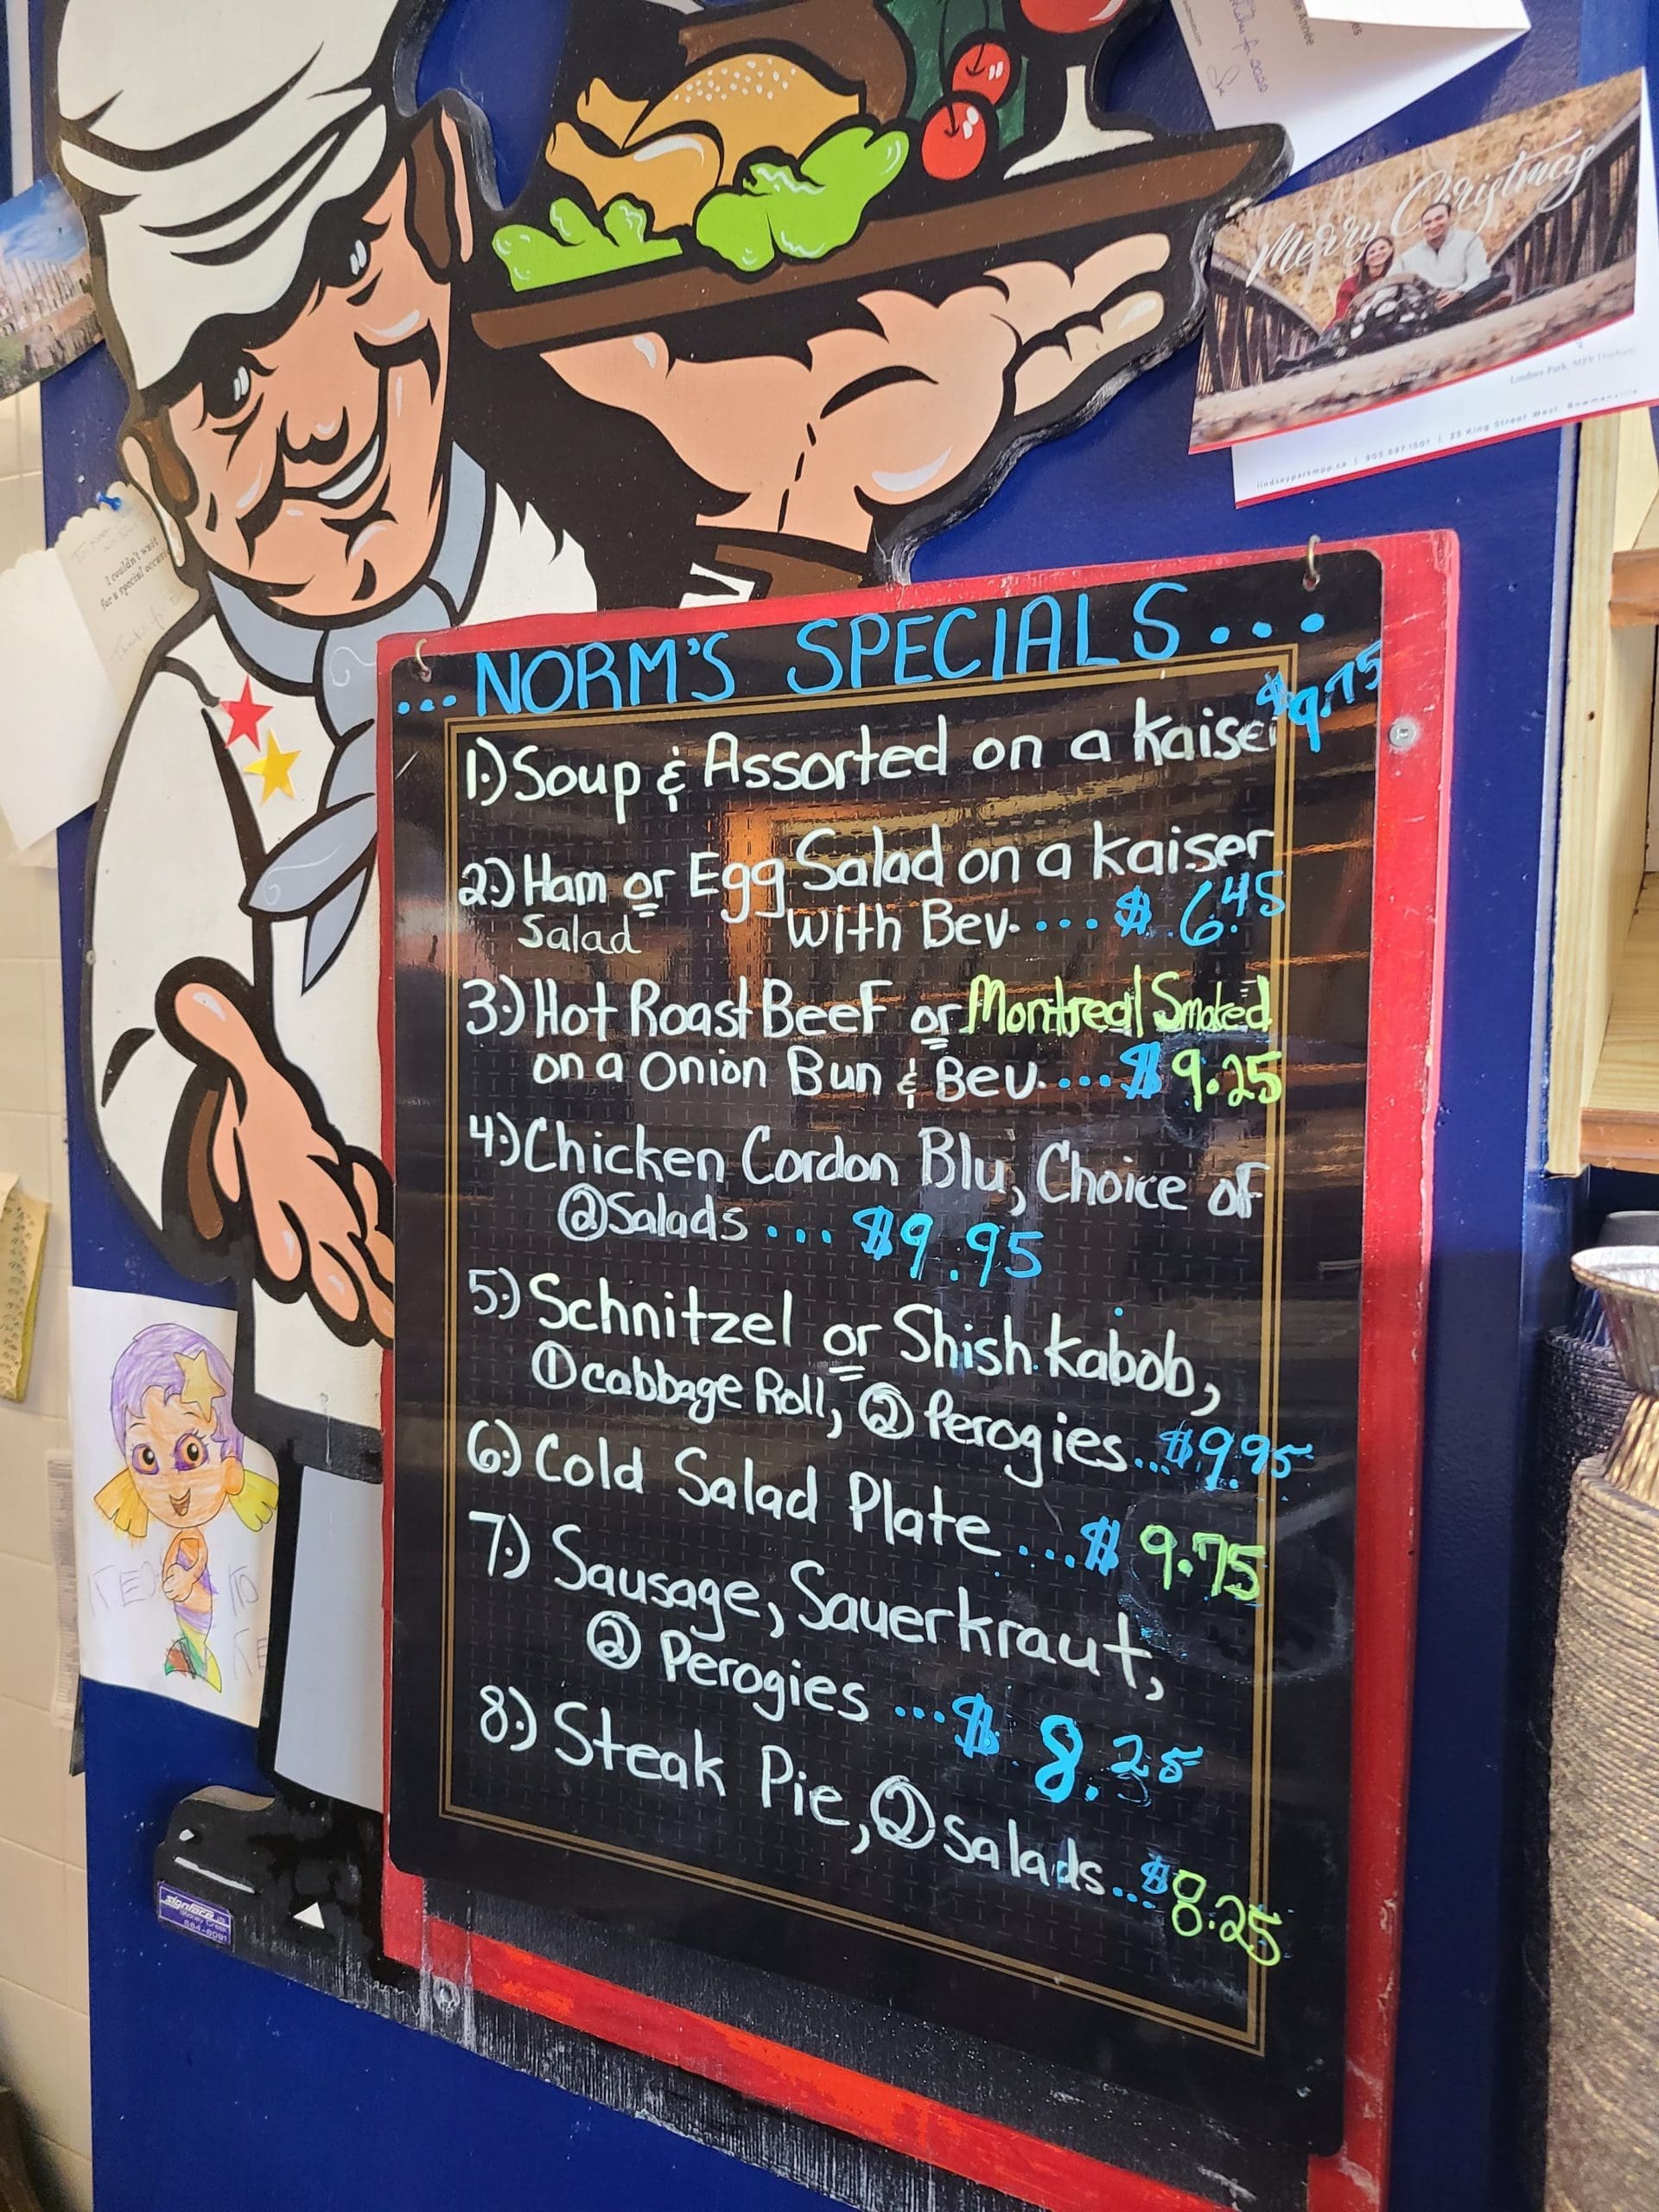 Merry Christmas
Lindsey Park, MPP Durham
lindseyparkmpp.ca | 905.697.1501 | 23 King Street West, Bowmanville
I couldn't wait
for a special occasi
... NORM'S SPECIALS ...
1.) Soup & Assorted on a kaiser $9.75
2.) Ham or Egg Salad on a kaiser
Salad with Bev. ... $ 6.45
3.) Hot Roast Beef or Montreal Smoked
on a Onion Bun & Bev. ... $ 9.25
4.) Chicken Cordon Blu, Choice of
② Salads .... $9.95
5.) Schnitzel or Shish Kabob,
① cabbage Roll, ② Perogies... $9.95
6.) Cold Salad Plate ... $ 9.75
7.) Sausage, Sauerkraut,
② Perogies ... $ 8.25
8.) Steak Pie, ② Salads... $8.25
signface
664-6091